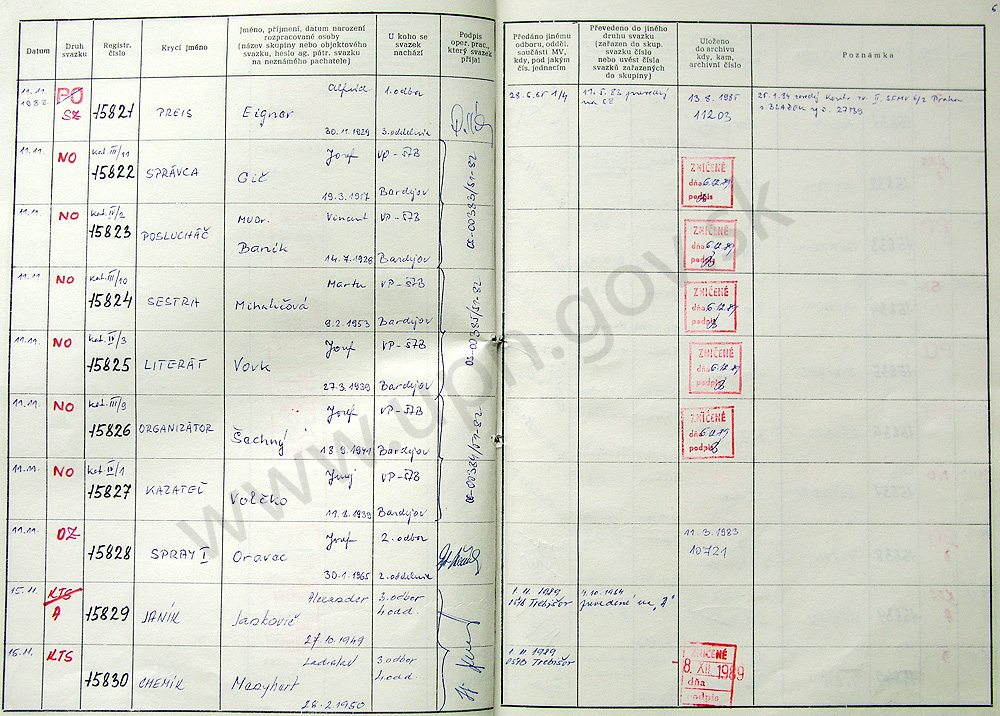 6
Datum
Druh svazku
Registr. číslo
Krycí jméno
Jméno, příjmení, datum narození
rozpracované osoby
(název skupiny nebo objektového
svazku, heslo ag. pátr. svazku
na neznámého pachatele)
U koho se
svazek
nachází
Podpis
oper. prac.,
který svazek
přijal
Předáno jinému
odboru, odděl.
součásti MV,
kdy, pod jakým
čís. jednacím
Převedeno do jiného
druhu svazku
(zařazen do skup.
svazku číslo
nebo uvést čísla
svazků zařazených
do skupiny)
Uloženo
do archivu
kdy, kam,
archivní číslo
Poznámka
11.11. 1982 PO SZ 15821 PREIS Alfréd Eigner 30.11.1929 1. odbor 3. oddelenie 28.6.85 1/4 13.8.1985 11203
11.11. NO kat III/11 15822 SPRÁVCA Jozef Gič 19.3.1917 VP-ŠTB Bardejov ZNIČENÉ dňa 6.12.89 podpis
11.11. NO kat. II/2 15823 POSLUCHÁČ MUDr. Vincent Baník 14.7.1928 VP-ŠTB Bardejov ZNIČENÉ dňa 6.12.89 podpis
11.11. NO kat. III/10 15824 SESTRA Marta Mihaličová 9.2.1953 VP-ŠTB Bardejov ZNIČENÉ dňa 6.12.89 podpis
11.11. NO 15825 LITERÁT Jozef Vovk 27.3.1939 VP-ŠTB Bardejov ZNIČENÉ dňa 6.12.89 podpis
11.11. NO kat. III/9 15826 ORGANIZÁTOR Jozef Šachný 18.9.1941 VP-ŠTB Bardejov ZNIČENÉ dňa 6.12.89 podpis
11.11. NO 15827 KAZATEĽ Juraj Volčko 11.8.1939 VP-ŠTB Bardejov
11.11. OZ 15828 SPRAY I Jozef Oravec 30.1.1965 2. odbor 2. oddelenie 11.3.1983 10721
15.11. KTS A 15829 JANÍK Alexander Jaskovič 27.10.1949 3. odbor 4. odd. 1.11.1989 OŠTB Trebišov 4.10.1984 prevedené na „A"
15.11. KTS 15830 CHEMIK Ladislav 26.2.1950 3. odbor 4. odd. 1.11.1989 OŠTB Trebišov ZNIČENÉ 8. XII. 1989 dňa podpis
www.upn.gov.sk